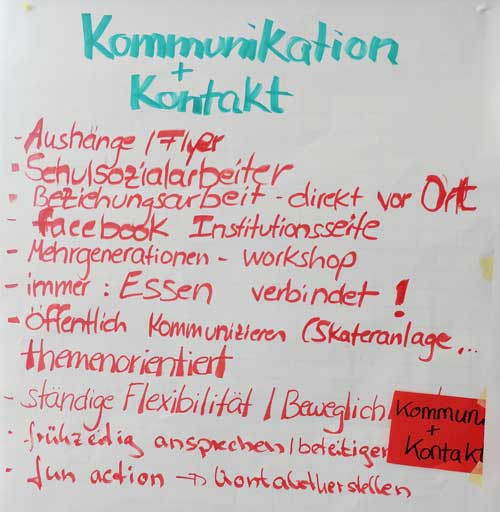 Kommunikation
+
Kontakt
- Aushänge / Flyer
- Schulsozialarbeiter
- Beziehungsarbeit - direkt vor Ort
- facebook Institutionsseite
- Mehrgenerationen - workshop
- immer : Essen verbindet !
- Öffentlich kommunizieren (Skateranlage, ..
themenorientiert
- ständige Flexibilität / Beweglich
- frühzeitig ansprechen / beteiligen
- fun action → Kontaktherstellen
Kommun
+
Kontakt